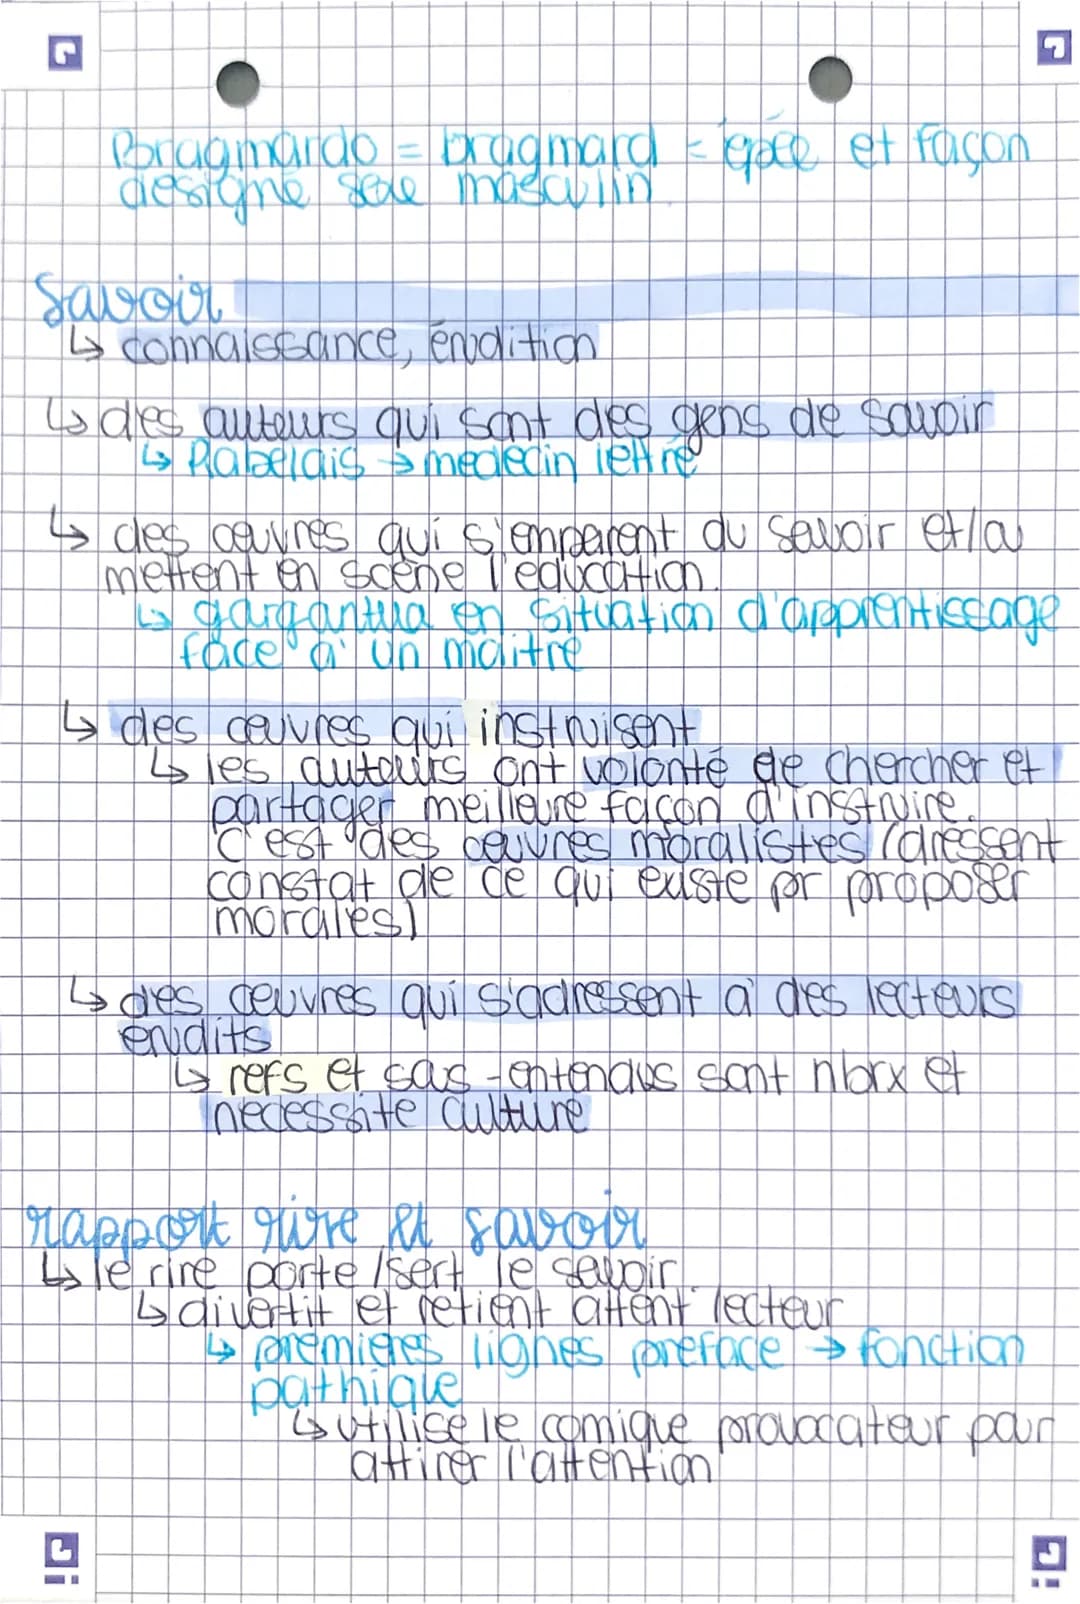 Bragmardo = bragmard = épée et façon
désigne sexe masculin.
Savoir
↳ connaissance, érudition
↳ des auteurs qui sont des gens de savoir
↳ Rabelais → médecin lettré
↳ des œuvres qui s'emparent du savoir et/ou
mettent en scène l'éducation.
↳ gargantua en situation d'apprentissage
face à un maitre
↳ des œuvres qui instruisent
↳ les auteurs ont volonté de chercher et
partager meilleure façon d'instruire.
C'est des œuvres moralistes (dressent
constat de ce qui existe pr proposer
morales)
↳ des œuvres qui s'adressent à des lecteurs
érudits
↳ refs et sous-entendus sont nbrx et
nécessite culture
rapport rire et savoir
↳ le rire porte/sert le savoir.
↳ divertit et retient attent° lecteur
↳ premières lignes préface → fonction
pathique
↳ utilise le comique provocateur pour
attirer l'attention